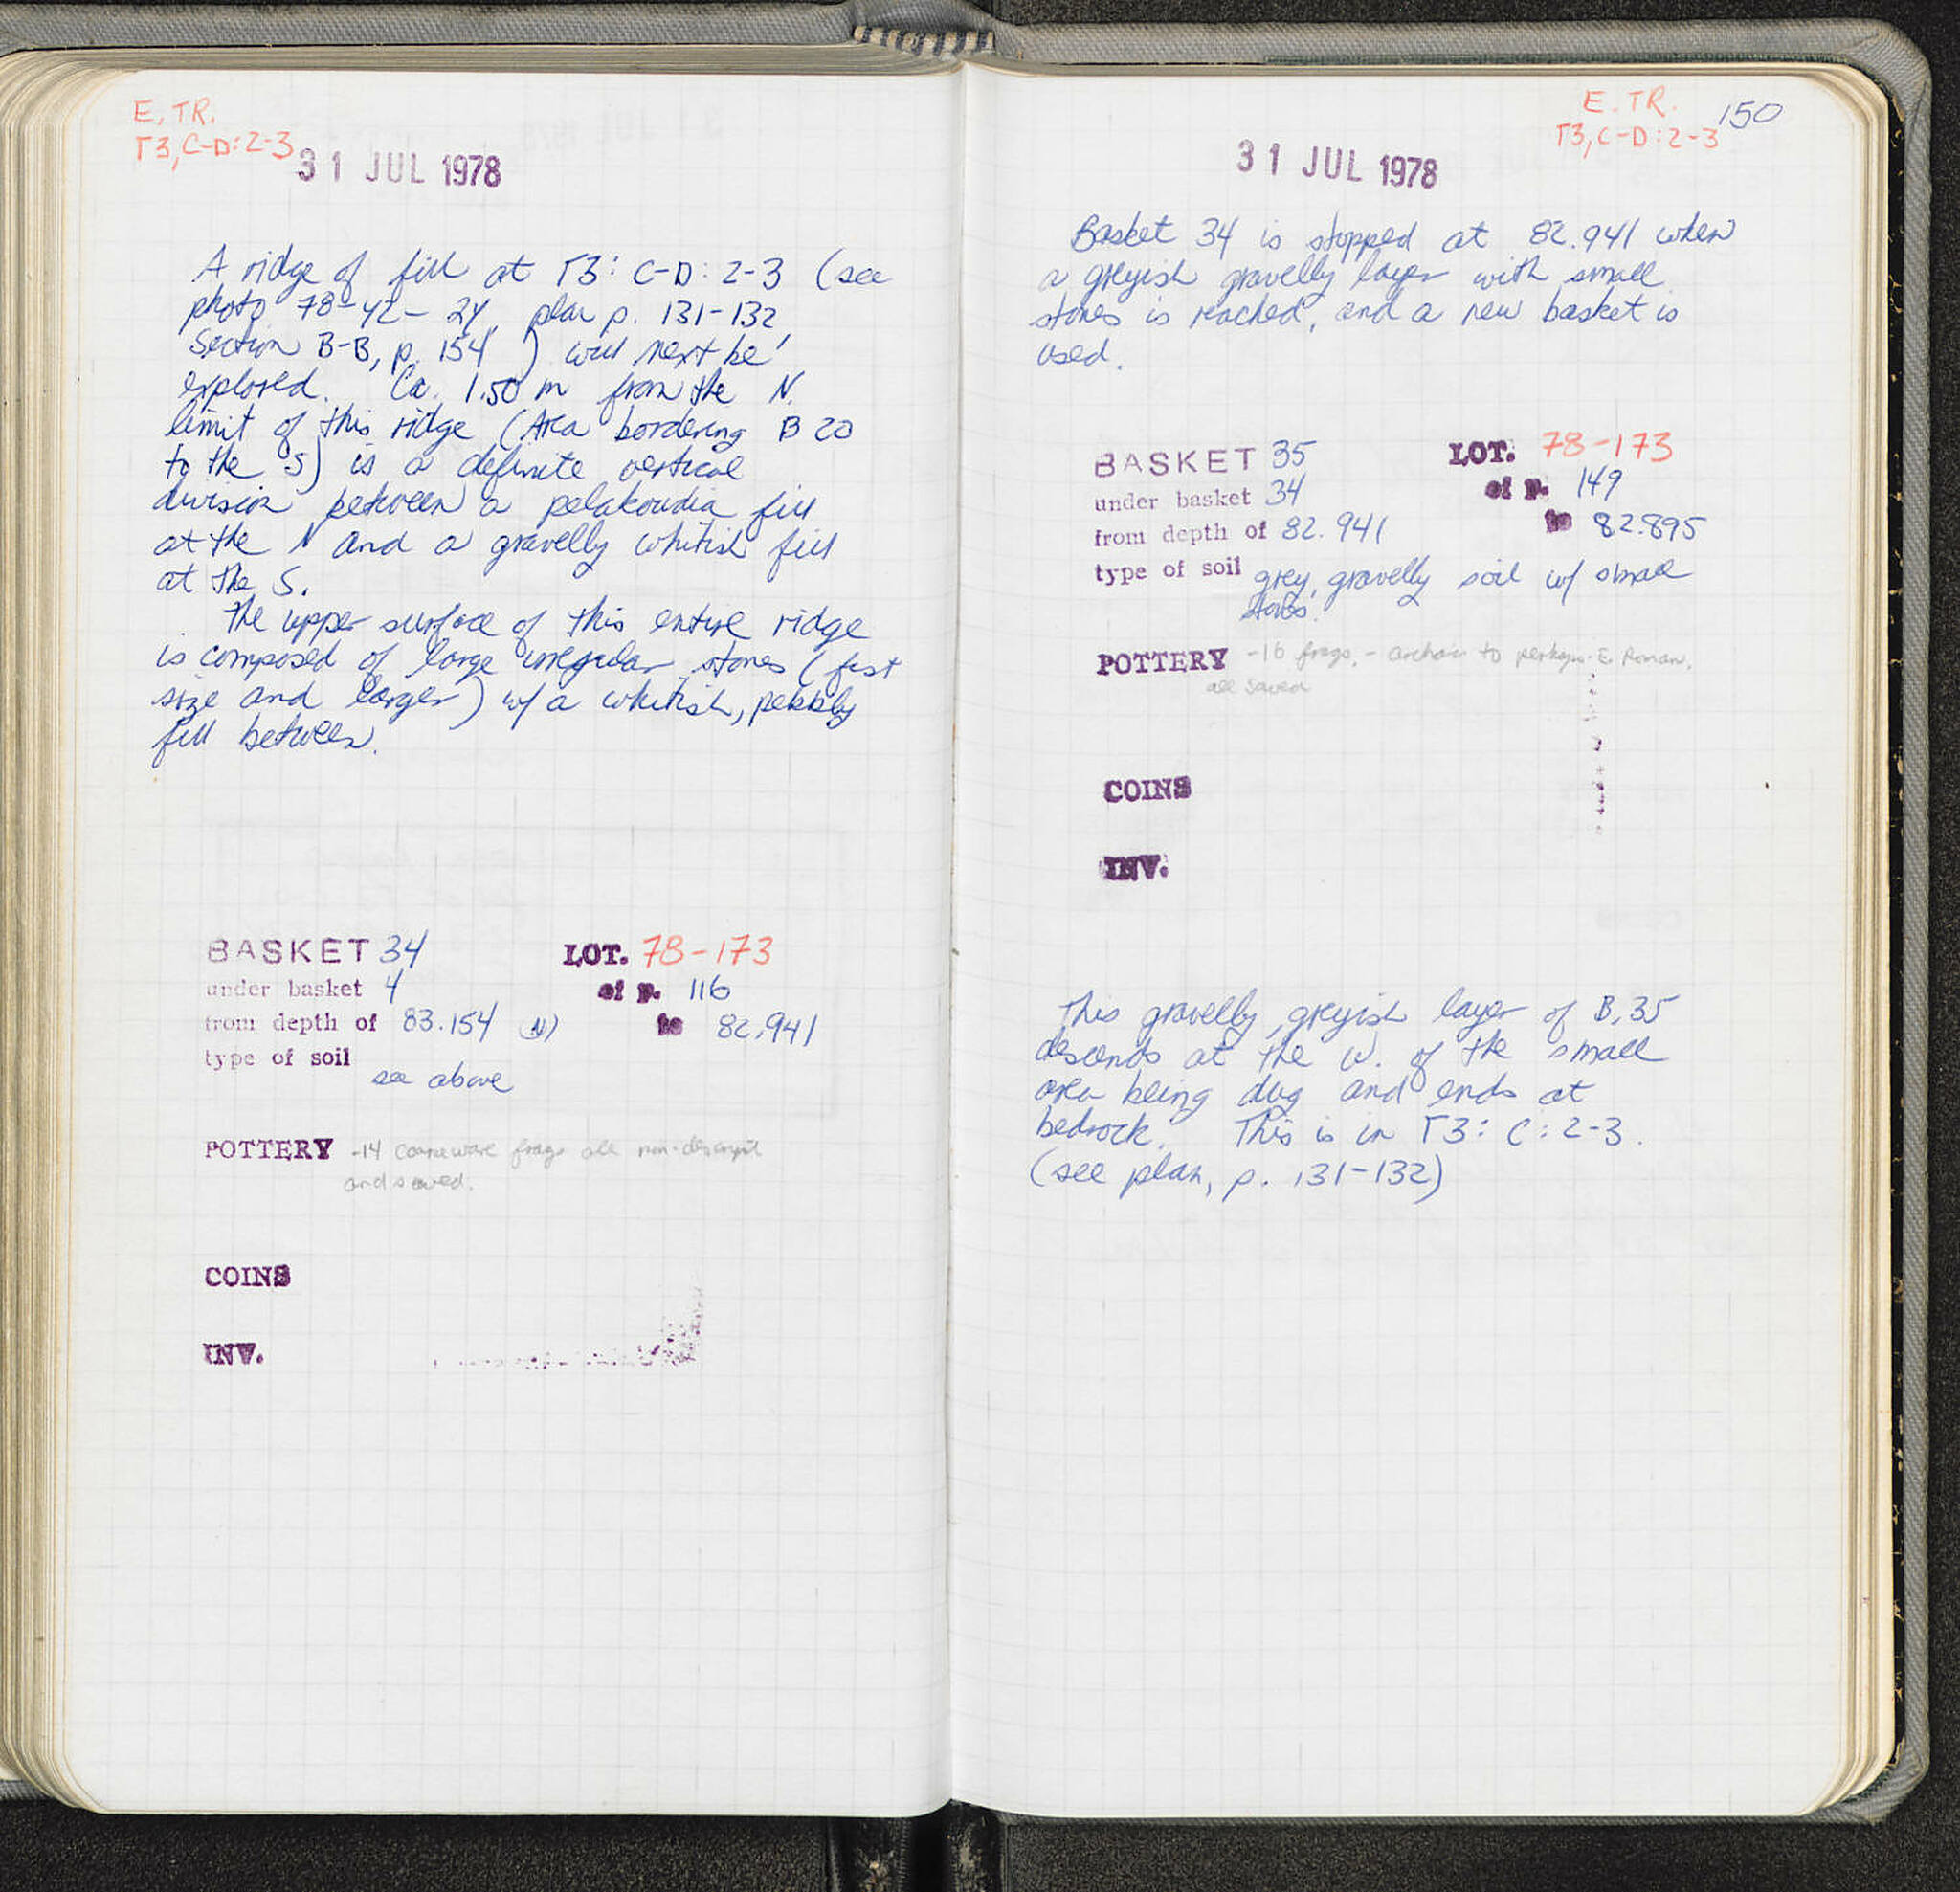 E. TR.
Γ3, C-D: 2-3
31 JUL 1978
A ridge of fill at Γ3: C-D: 2-3 (see
photo 78-42-24, plan p. 131-132,
Section B-B, p. 154 ) will next be
explored. Ca. 1.50 m from the N.
limit of this ridge (Area bordering B 20
to the S) is a definite vertical
division between a pelakoudia fill
at the N and a gravelly whitish fill
at the S.
The upper surface of this entire ridge
is composed of large irregular stones (fist
size and larger) w/ a whitish, pebbly
fill between.
BASKET 34 LOT. 78-173
under basket 4 of p. 116
from depth of 83.154 (N) to 82.941
type of soil
see above
POTTERY -14 coarseware frags all non-descript
and saved.
COINS
INV.
E. TR. 150
Γ3, C-D: 2-3
31 JUL 1978
Basket 34 is stopped at 82.941 when
a greyish gravelly layer with small
stones is reached, and a new basket is
used.
BASKET 35 LOT. 78-173
under basket 34 of p. 149
from depth of 82.941 to 82.895
type of soil grey, gravelly soil w/ small
stones.
POTTERY -16 frags. - archaic to perhaps E. Roman.
all saved
COINS
INV.
This gravelly, greyish layer of B. 35
descends at the W. of the small
area being dug and ends at
bedrock. This is in Γ3: C: 2-3.
(see plan, p. 131-132)